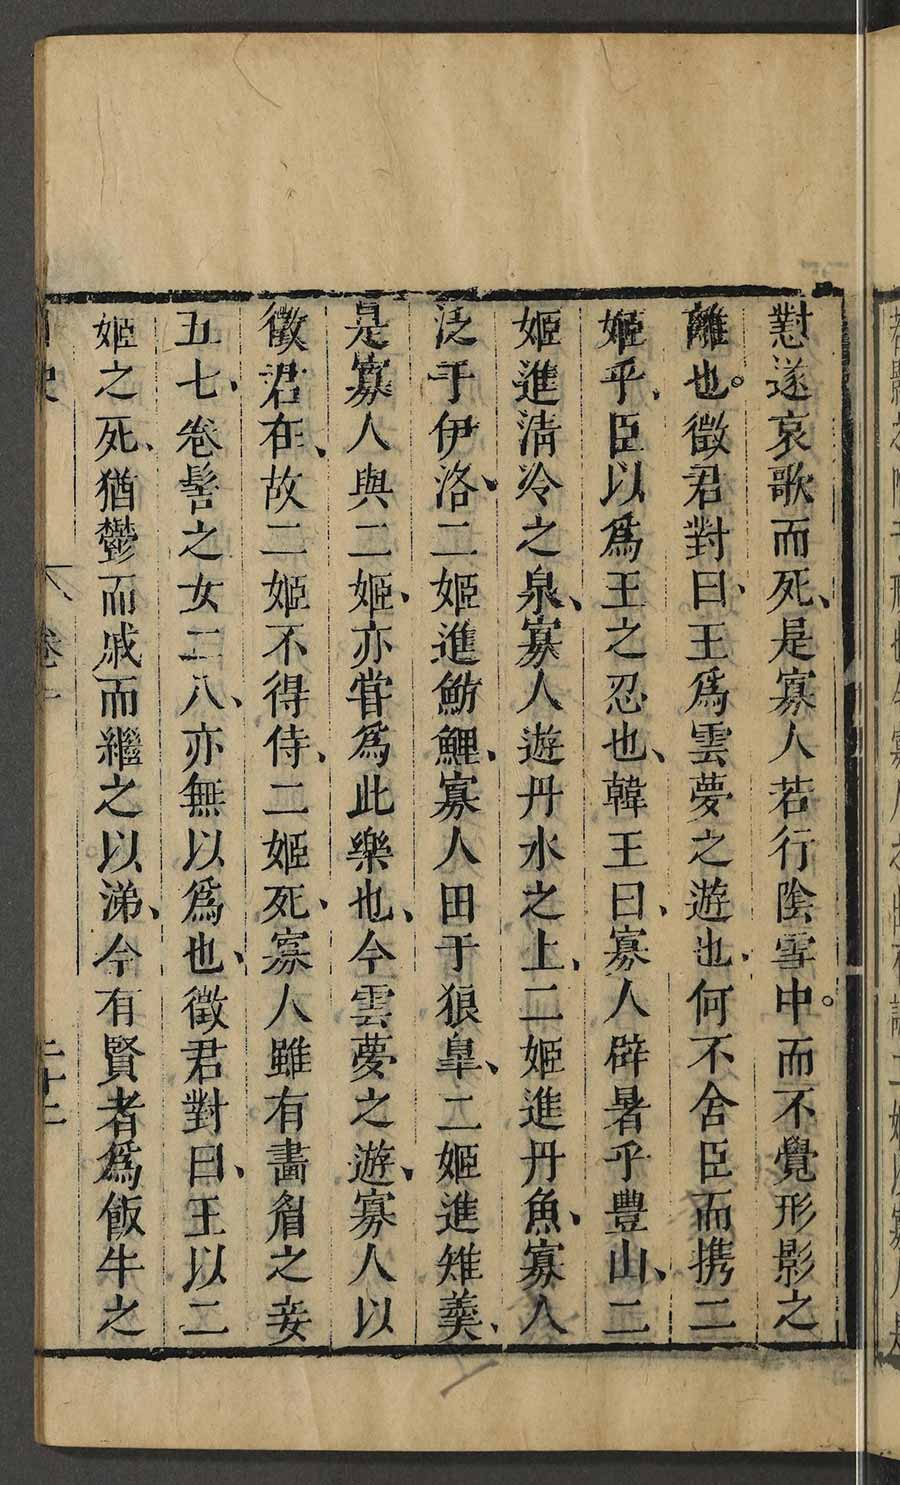 懟遂哀歌而死、是寡人若行陰雪中。而不覺形影之
離也。徵君對曰、王爲雲夢之遊也、何不舍臣而携二
姬乎、臣以爲王之忍也、韓王曰、寡人辟暑乎豊山、二
姬進淸冷之泉、寡人遊丹水之上、二姬進丹魚、寡人
泛于伊洛、二姬進魴鯉、寡人田于狼臯、二姬進雉羹、
是寡人與二姬、亦甞爲此樂也、今雲夢之遊、寡人以
徵君在、故二姬不得侍、二姬死、寡人雖有畵眉之妾
五七、卷髻之女二八、亦無以爲也、徵君對曰、王以二
姬之死、猶鬱而戚而繼之以涕、今有賢者爲飯牛之
卷 二十二